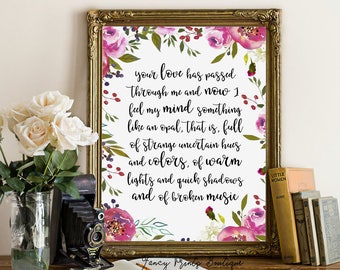 Your love has passed
through me and now I
feel my mind something
like an opal, that is, full
of strange uncertain hues
and colors, of warm
lights and quick shadows
and of broken music
Fancy Prints Boutique
LITTLE WOMEN